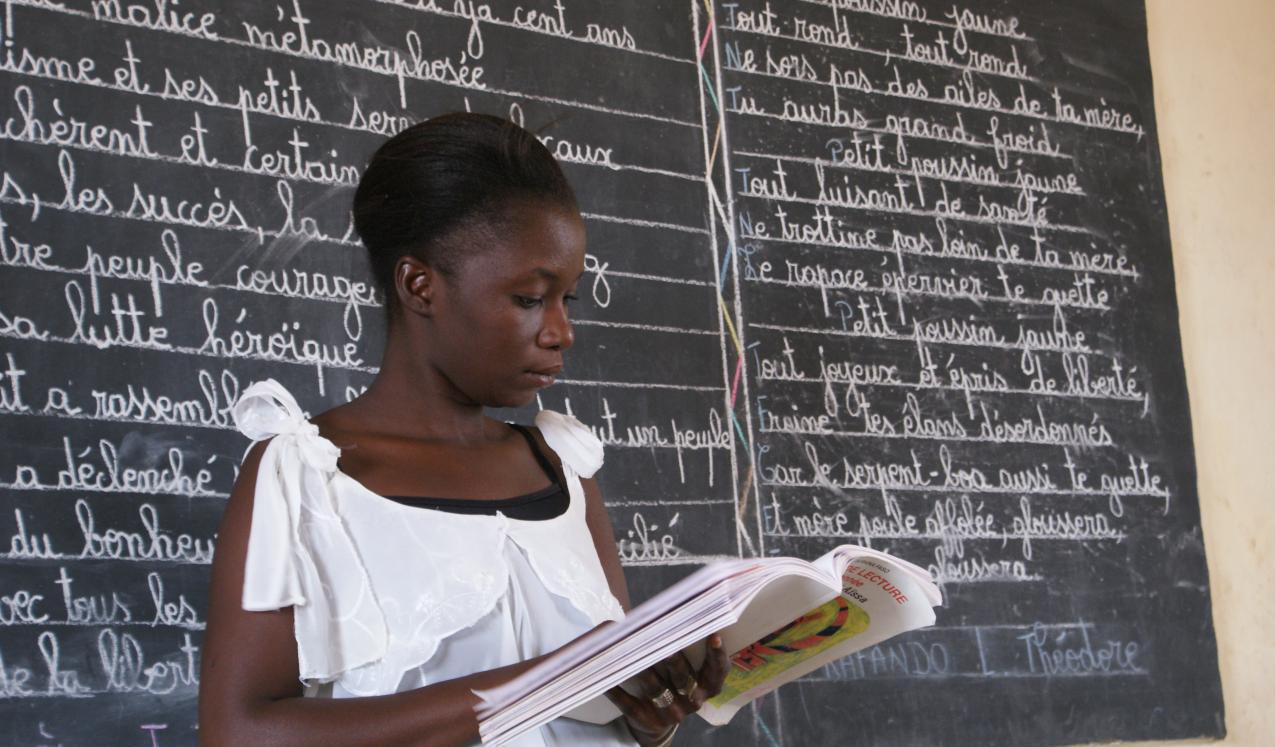 malice métamorphosée
il y a cent ans
isme et ses petits
caux
chèrent et certain
s, les succès, la
tre peuple courage
sa lutte héroïque
it a rassembl
tout un peuple
a déclenché
du bonheu
cilié
vec tous les
de la libert
poussin jaune
Tout rond, tout rond
Ne sors pas des ailes de ta mère,
Tu auras grand froid
Petit poussin jaune
Tout luisant de santé
Ne trottine pas loin de ta mère,
Le rapace épervier te guette
Petit poussin jaune
Tout joyeux et épris de liberté,
Freine tes élans désordonnés
Car le serpent-boa aussi te guette,
Et mère poule affolée, gloussera,
gloussera.
KAFANDO L Théodore
DE LECTURE